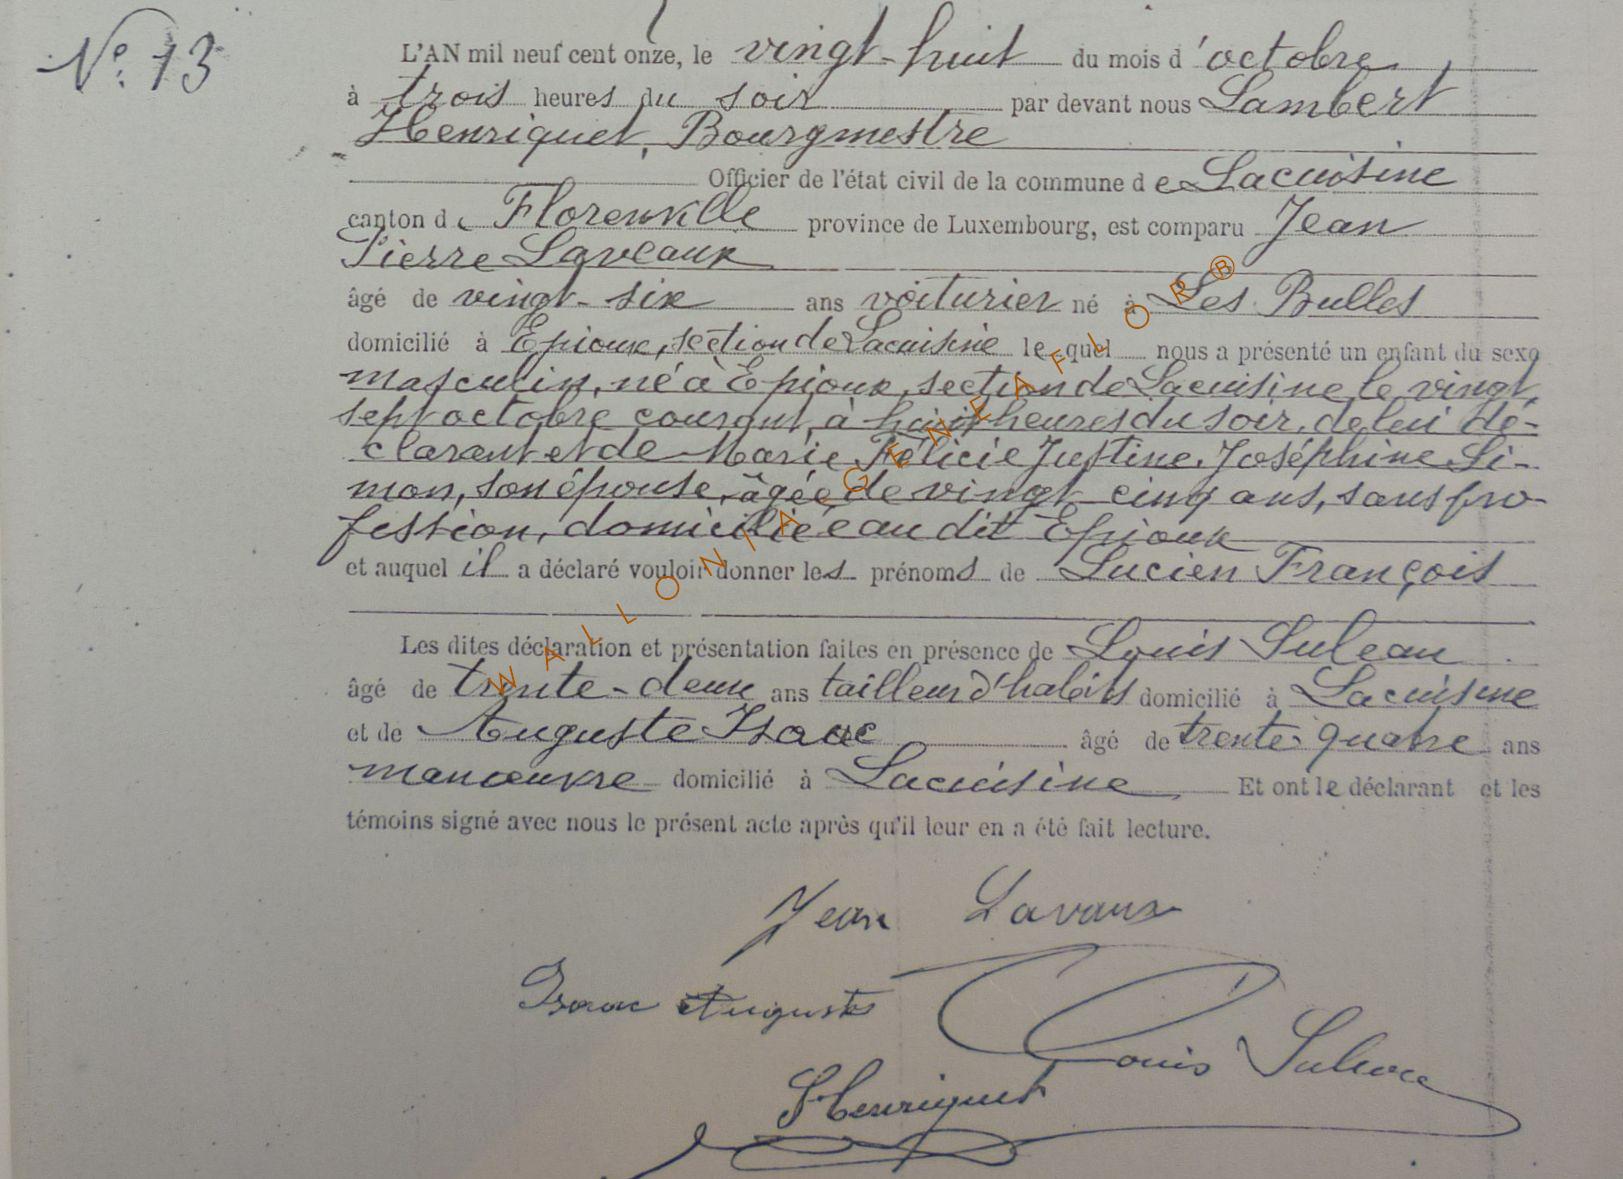 N° 13
L'AN mil neuf cent onze, le vingt-huit du mois d'octobre
à trois heures du soir par devant nous Lambert
Henriquet, Bourgmestre
Officier de l'état civil de la commune de Lacuisine
canton de Florenville province de Luxembourg, est comparu Jean
Pierre Laveaux
âgé de vingt-six ans voiturier né à Les Bulles
domicilié à Epioux, section de Lacuisine le quel nous a présenté un enfant du sexe
masculin, né à Epioux, section de Lacuisine le vingt
sept octobre courant, à huit heures du soir, de lui dé-
clarant et de Marie Félicie Justine Joséphine Si-
mon, son épouse, âgée de vingt cinq ans, sans pro-
fession, domiciliée au dit Epioux
et auquel il a déclaré vouloir donner les prénoms de Lucien François
Les dites déclaration et présentation faites en présence de Louis Suleau
âgé de trente-deux ans tailleur d'habits domicilié à Lacuisine
et de Auguste Isaac âgé de trente-quatre ans
manœuvre domicilié à Lacuisine Et ont le déclarant et les
témoins signé avec nous le présent acte après qu'il leur en a été fait lecture.
Jean Lavaux
Isaac Auguste
Louis Suleau
Henriquet
WALLONIA GENEAFLOR®